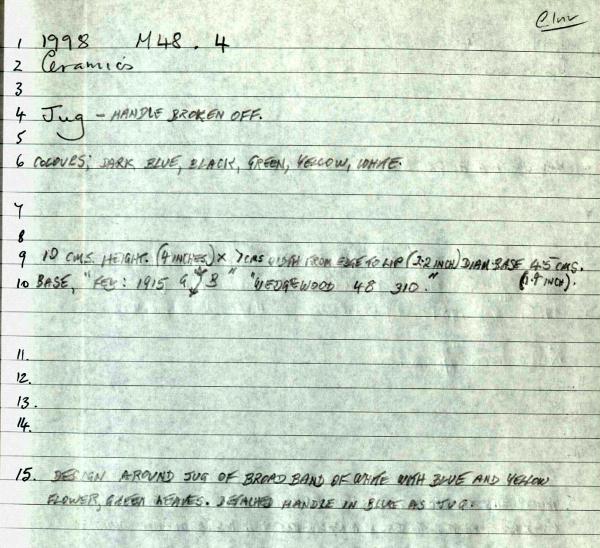 1 1998 M48.4
2 Ceramics
3
4 Jug - HANDLE BROKEN OFF.
5
6 COLOURS; DARK BLUE, BLACK, GREEN, YELLOW, WHITE.
7
8
9 10 CMS. HEIGHT. (4 INCHES) x 7 CMS WIDTH FROM EDGE TO LIP (3.2 INCH) DIAM. BASE 4.5 CMS.
10 BASE, " : 1915 B" "WEDGEWOOD 48 310." INCH).
11.
12.
13.
14.
15. DESIGN AROUND JUG OF BROAD BAND OF WHITE WITH BLUE AND YELLOW
FLOWER, GREEN LEAVES. DETACHED HANDLE IN BLUE AS JUG.